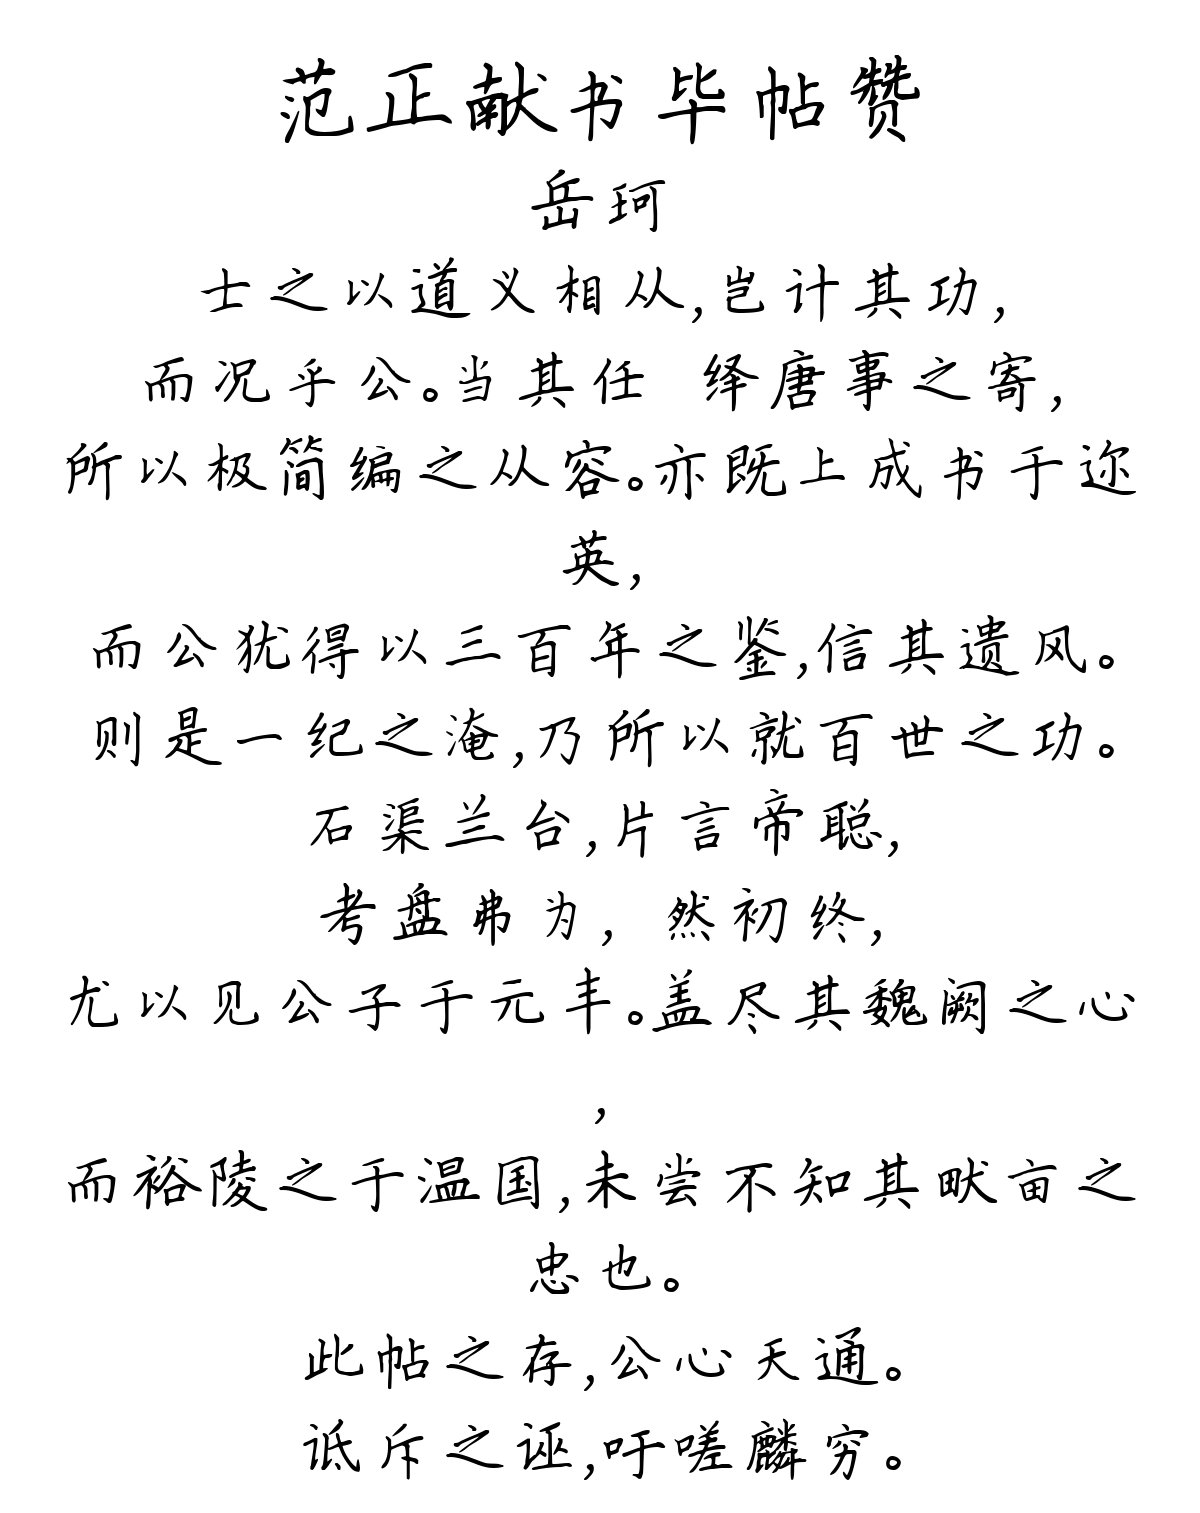 范正献书毕帖赞
岳珂
士之以道义相从,岂计其功,
而况乎公。当其任 绎唐事之寄,
所以极简编之从容。亦既上成书于迩
英,
而公犹得以三百年之鉴,信其遗风。
则是一纪之淹,乃所以就百世之功。
石渠兰台,片言帝聪,
考盘弗为, 然初终,
尤以见公子于元丰。盖尽其魏阙之心
,
而裕陵之于温国,未尝不知其畎亩之
忠也。
此帖之存,公心天通。
诋斥之诬,吁嗟麟穷。